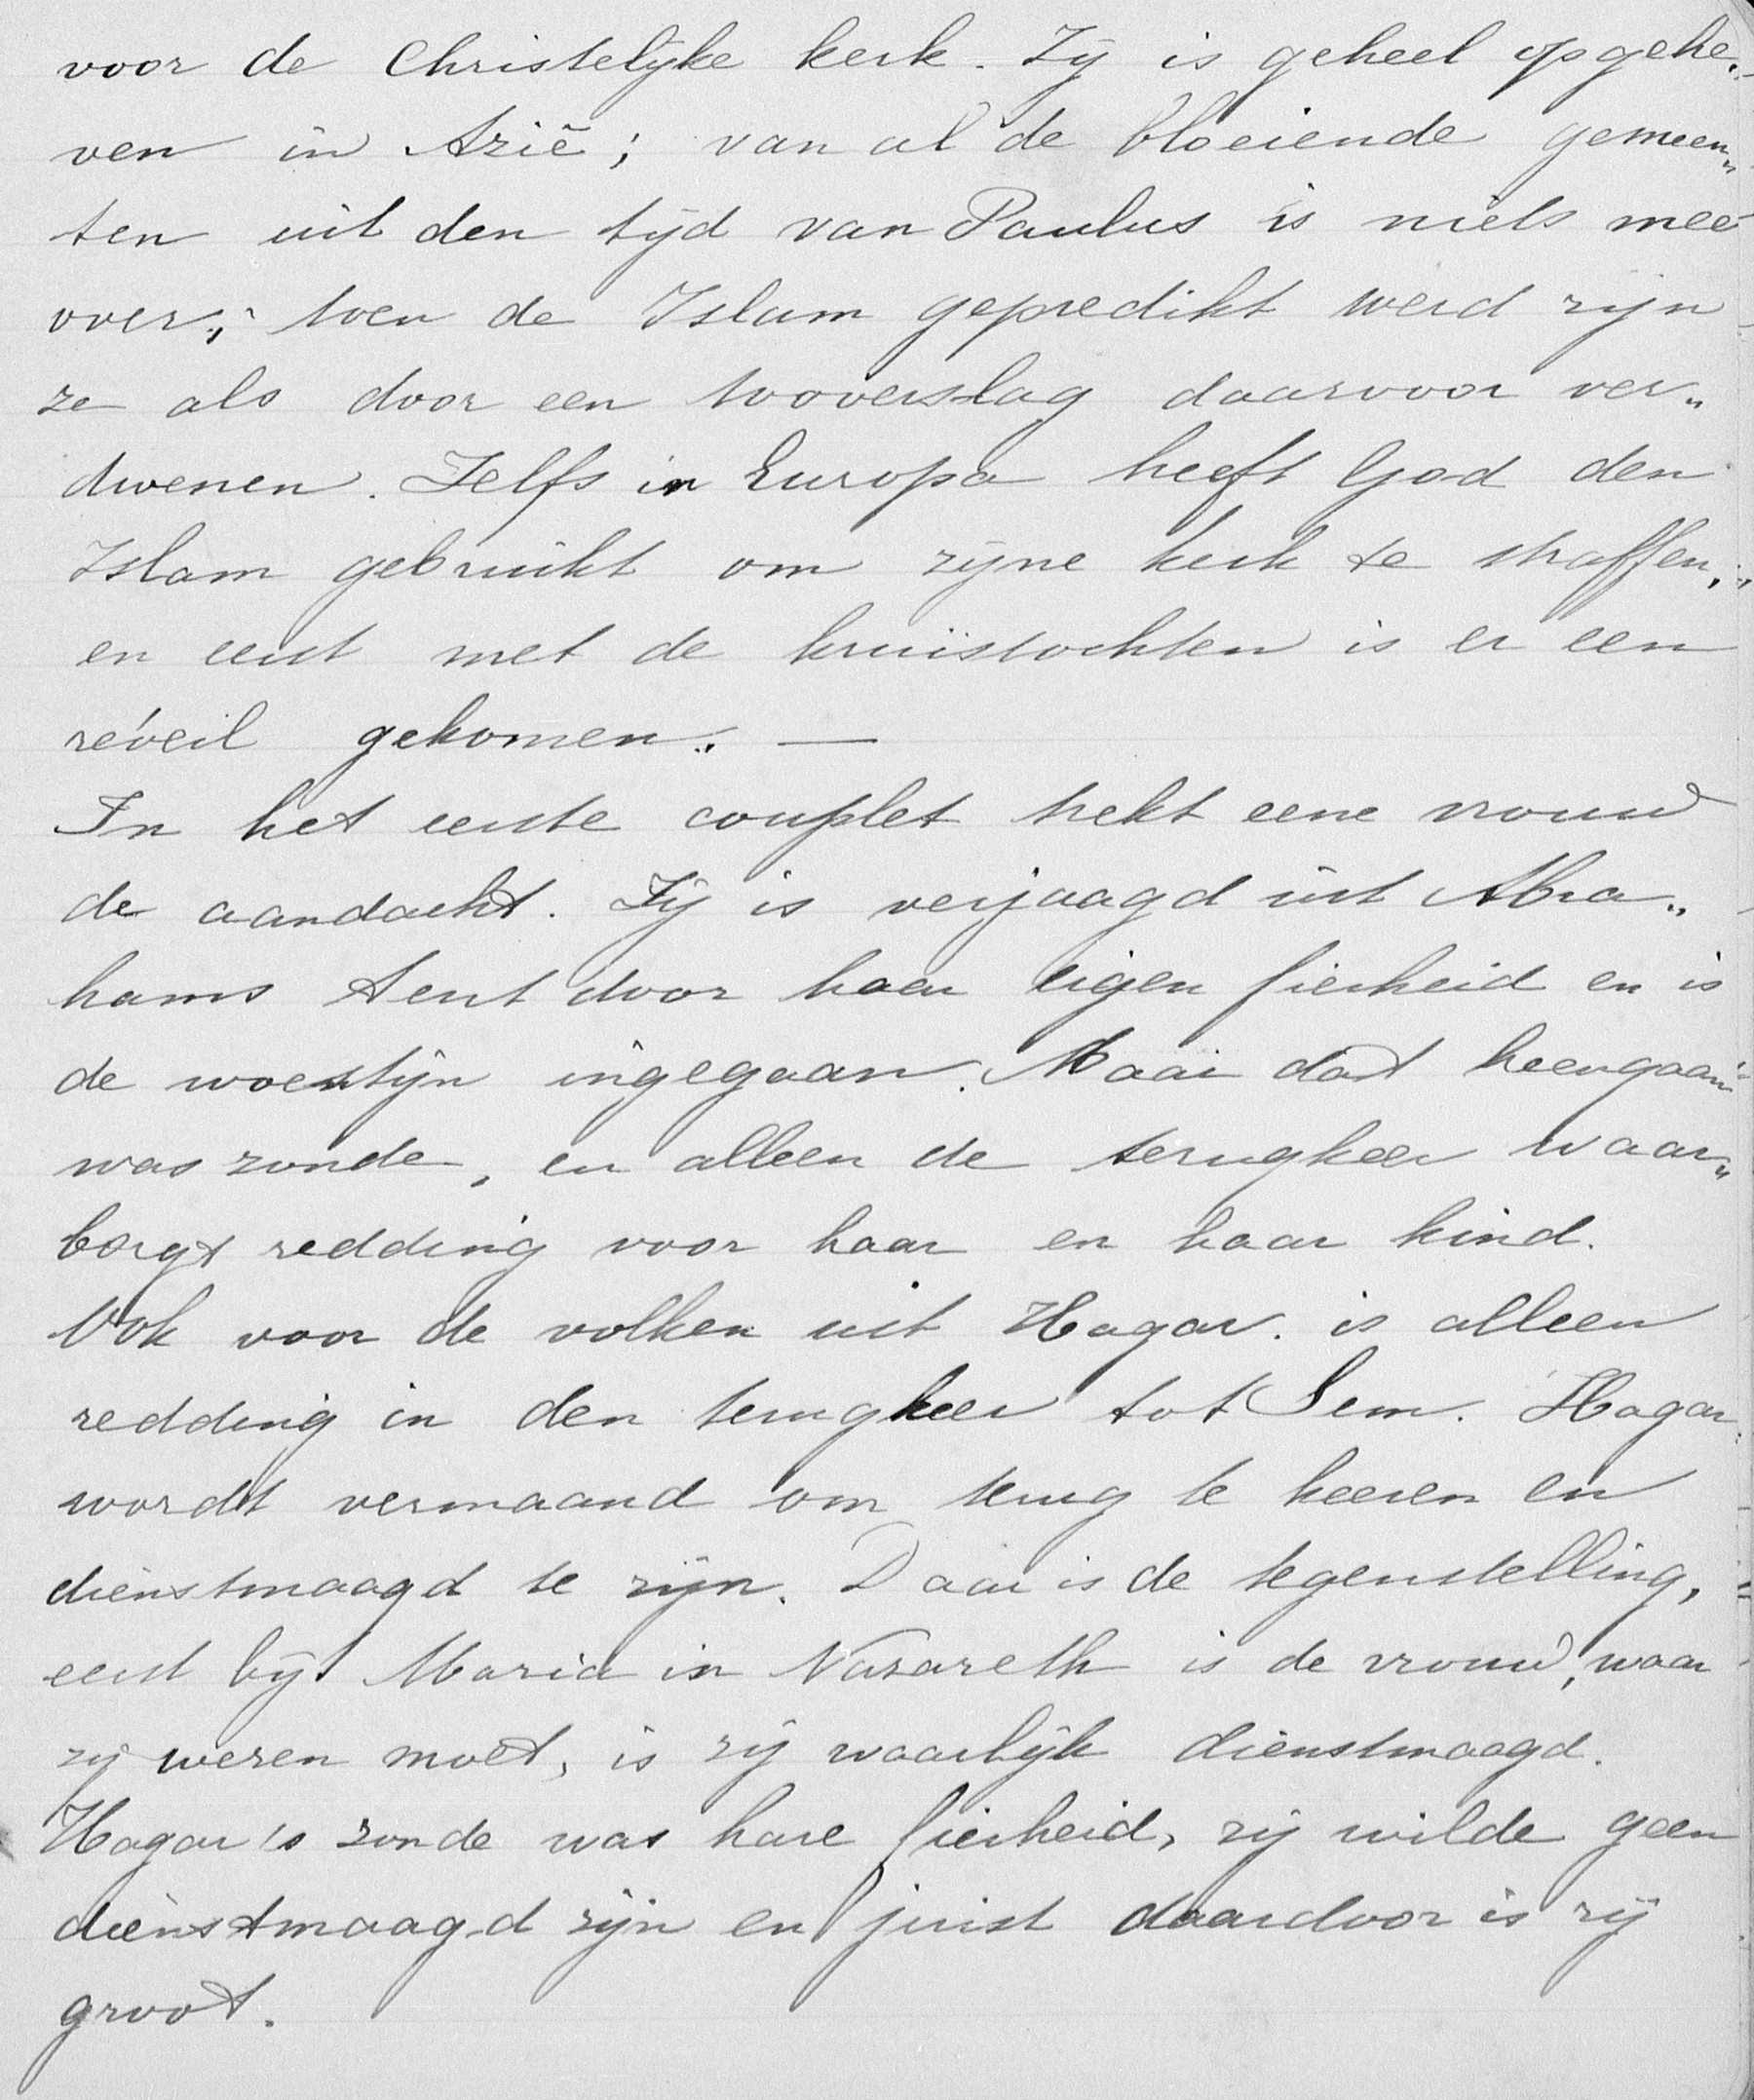 voor de Christelijke kerk. Zij is geheel opgehe„
ven in Azië; van al de bloeiende gemeen„
ten uit den tijd van Paulus is niets meer
over; toen de Islam gepredikt werd zijn
ze als door een tooverslag daarvoor ver„
dwenen. Zelfs in Europa heeft God den
Islam gebruikt om zijne kerk te straffen,
en eerst met de kruistochten is er een
réveil gekomen. —
In het eerste couplet trekt eene vrouw
de aandacht. Zij is verjaagd uit Abra„
hams tent door haar eigen fierheid en is
de woestijn ingegaan. Maar dat heengaan
was zonde, en alleen de terugkeer waar„
borgt redding voor haar en haar kind.
Ook voor de volken uit Hagar is alleen
redding in den terugkeer tot Sem. Hagar
wordt vermaand om terug te keeren en
dienstmaagd te zijn. Daar is de tegenstelling,
eerst bij Maria in Nazareth is de vrouw, waar
zij wezen moet, is zij waarlijk dienstmaagd.
Hagar's zonde was hare fierheid, zij wilde geen
dienstmaagd zijn en juist daardoor is zij
groot.